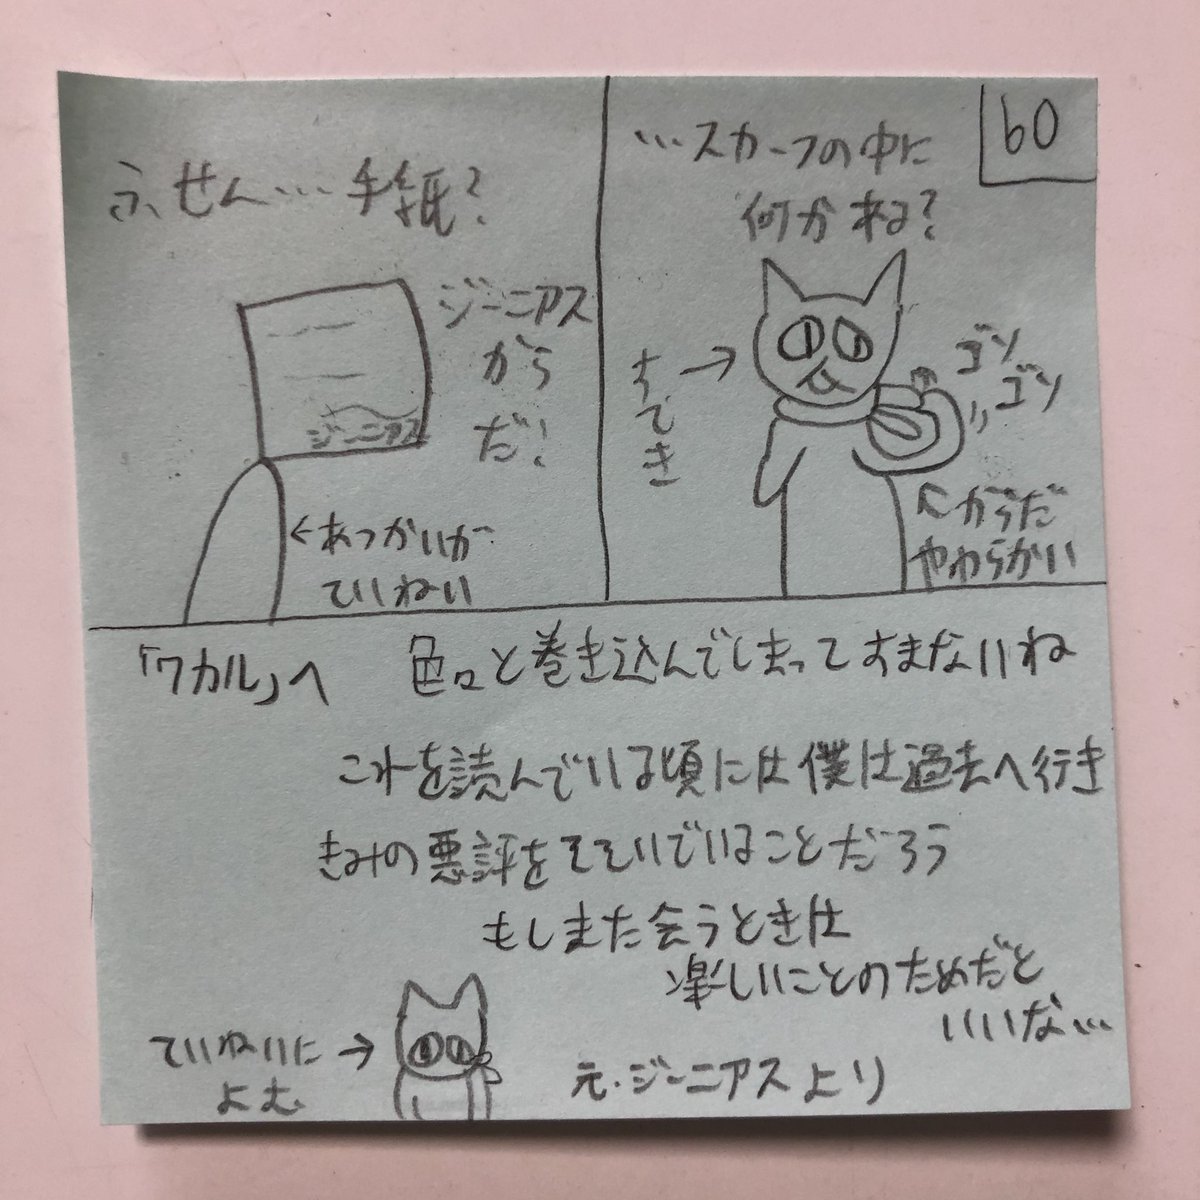 60
…スカーフの中に
何かある?
すてき
ゴソ
ゴソ
からだ
やわらかい
ふせん…手紙?
ジーニアス
から
だ!
ジーニアス
あつかいが
ていねい
「ワカル」へ 色々と巻き込んでしまってすまないね
これを読んでいる頃には僕は過去へ行き
きみの悪評をそそいでいることだろう
もしまた会うときは
楽しいことのためだと
いいな…
元・ジーニアスより
ていねいに
よむ